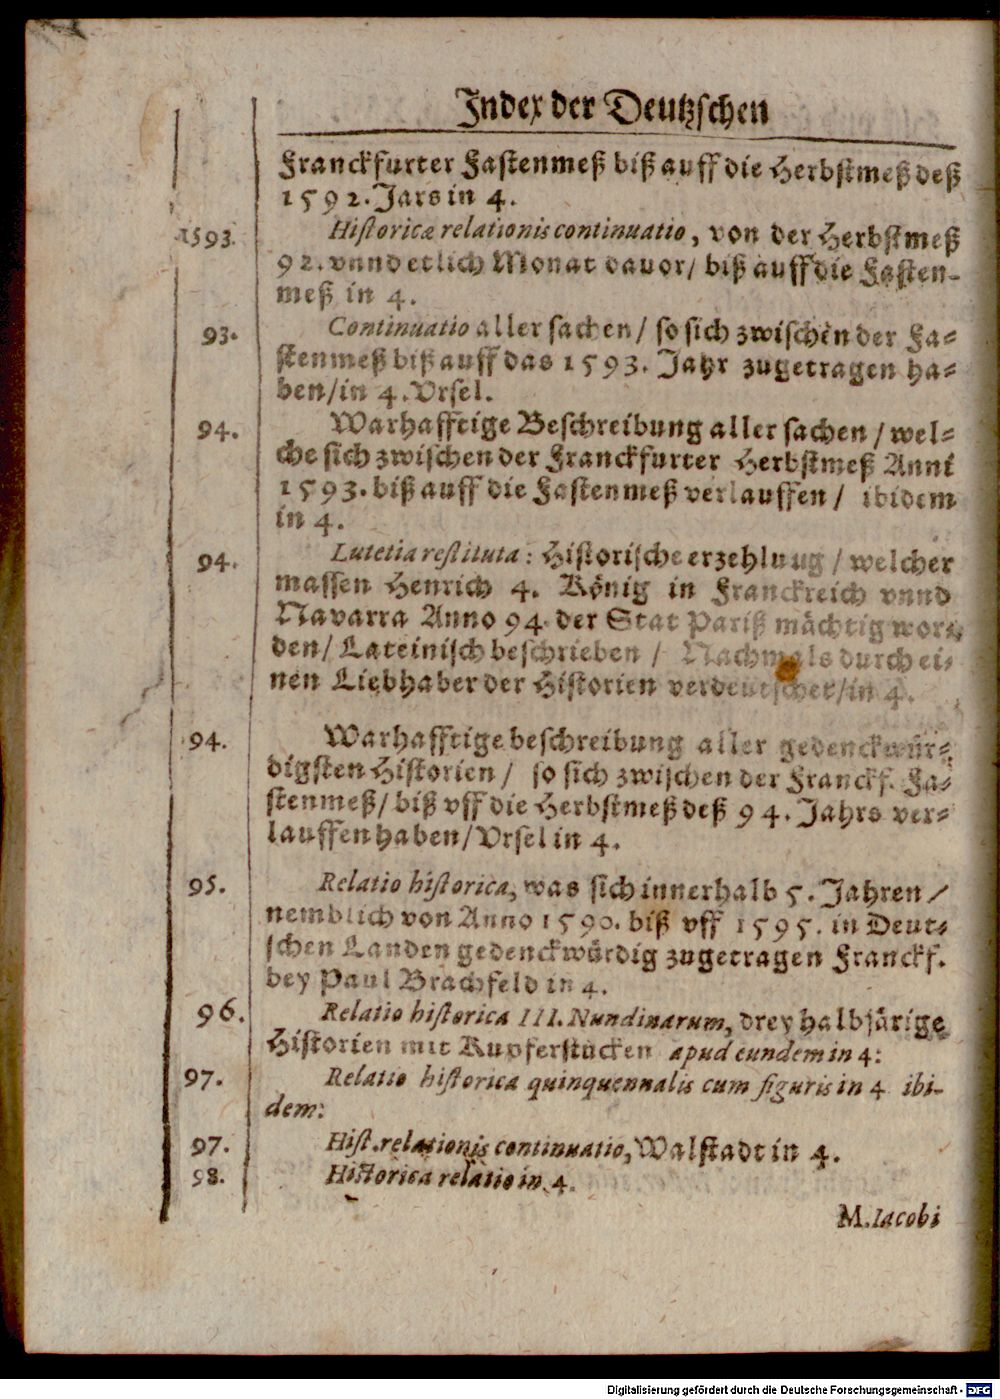 Index der Deutzschen
Franckfurter Fastenmeß biß auff die Herbstmeß deß
1592. Jars in 4.
1593. Historicæ relationis continuatio, von der Herbstmeß
92. vnnd etlich Monat dauor/ biß auff die Fasten-
meß in 4.
93. Continuatio aller sachen/ so sich zwischen der Fa-
stenmeß biß auff das 1593. Jahr zugetragen ha-
ben/in 4. Vrsel.
94. Warhafftige Beschreibung aller sachen / wel-
che sich zwischen der Franckfurter Herbstmeß Anni
1593. biß auff die Fastenmeß verlauffen / ibidem
in 4.
94. Lutetia restituta: Historische erzehluug / welcher
massen Henrich 4. König in Franckreich vnnd
Navarra Anno 94. der Stat Pariß mächtig wor-
den/ Lateinisch beschrieben / Nachmals durch ei-
nen Liebhaber der Historien verdeutschet/in 4.
94. Warhafftige beschreibung aller gedenckwür-
digsten Historien / so sich zwischen der Franckf. Fa-
stenmeß/ biß vff die Herbstmeß deß 94. Jahrs ver-
lauffen haben/Vrsel in 4.
95. Relatio historica, was sich innerhalb 5. Jahren /
nemblich von Anno 1590. biß vff 1595. in Deut-
schen Landen gedenckwürdig zugetragen Franckf.
bey Paul Brachfeld in 4.
96. Relatio historica III. Nundinarum, drey halbjärige
Historien mit Kupferstücken apud eundem in 4:
97. Relatio historica quinquennalis cum figuris in 4 ibi-
dem:
97. Hist. relationis continuatio, Walstadt in 4.
98. Historica relatio in 4.
M. Iacobi
Digitalisierung gefördert durch die Deutsche Forschungsgemeinschaft - DFG